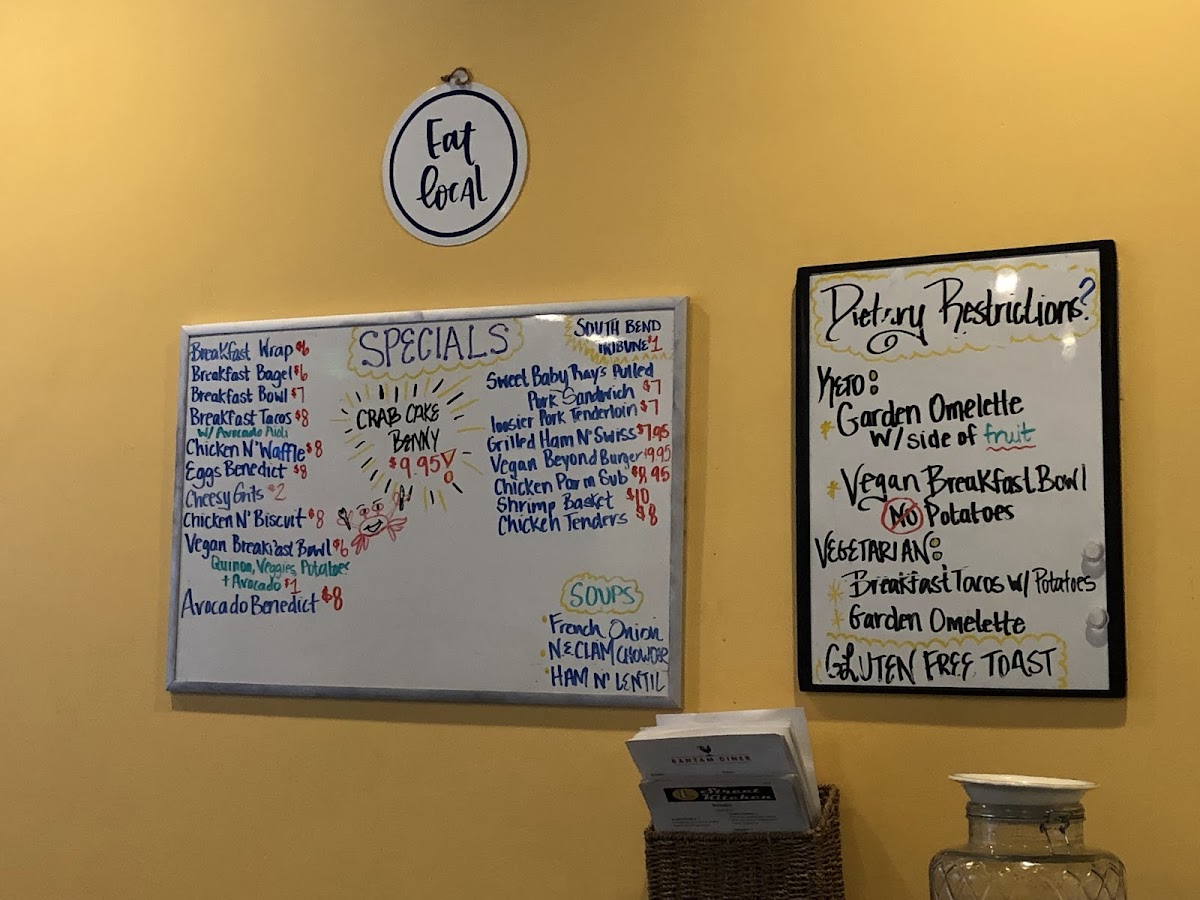 Eat
local
SPECIALS
Breakfast Wrap $6
Breakfast Bagel $6
Breakfast Bowl $7
Breakfast Tacos $8
w/ Avocado Aioli
Chicken N' Waffle $8
Eggs Benedict $8
Cheesy Grits $2
Chicken N' Biscuit $8
Vegan Breakfast Bowl $6
Quinoa, Veggies, Potatoes
+ Avocado $1
Avocado Benedict $8
CRAB CAKE
BENNY
$9.95!
SOUTH BEND
TRIBUNE $1
Sweet Baby Ray's Pulled
Pork Sandwich $7
Hoosier Pork Tenderloin $7
Grilled Ham N' Swiss $7.95
Vegan Beyond Burger $9.95
Chicken Parm Sub $8.95
Shrimp Basket $10
Chicken Tenders $8
SOUPS
French Onion
N.E CLAM CHOWDER
HAM N' LENTIL
Dietary Restrictions?
KETO:
* Garden Omelette
w/ side of fruit
* Vegan Breakfast Bowl
NO Potatoes
VEGETARIAN:
* Breakfast Tacos w/ Potatoes
* Garden Omelette
GLUTEN FREE TOAST
BANTAM DINER
Street
Kitchen